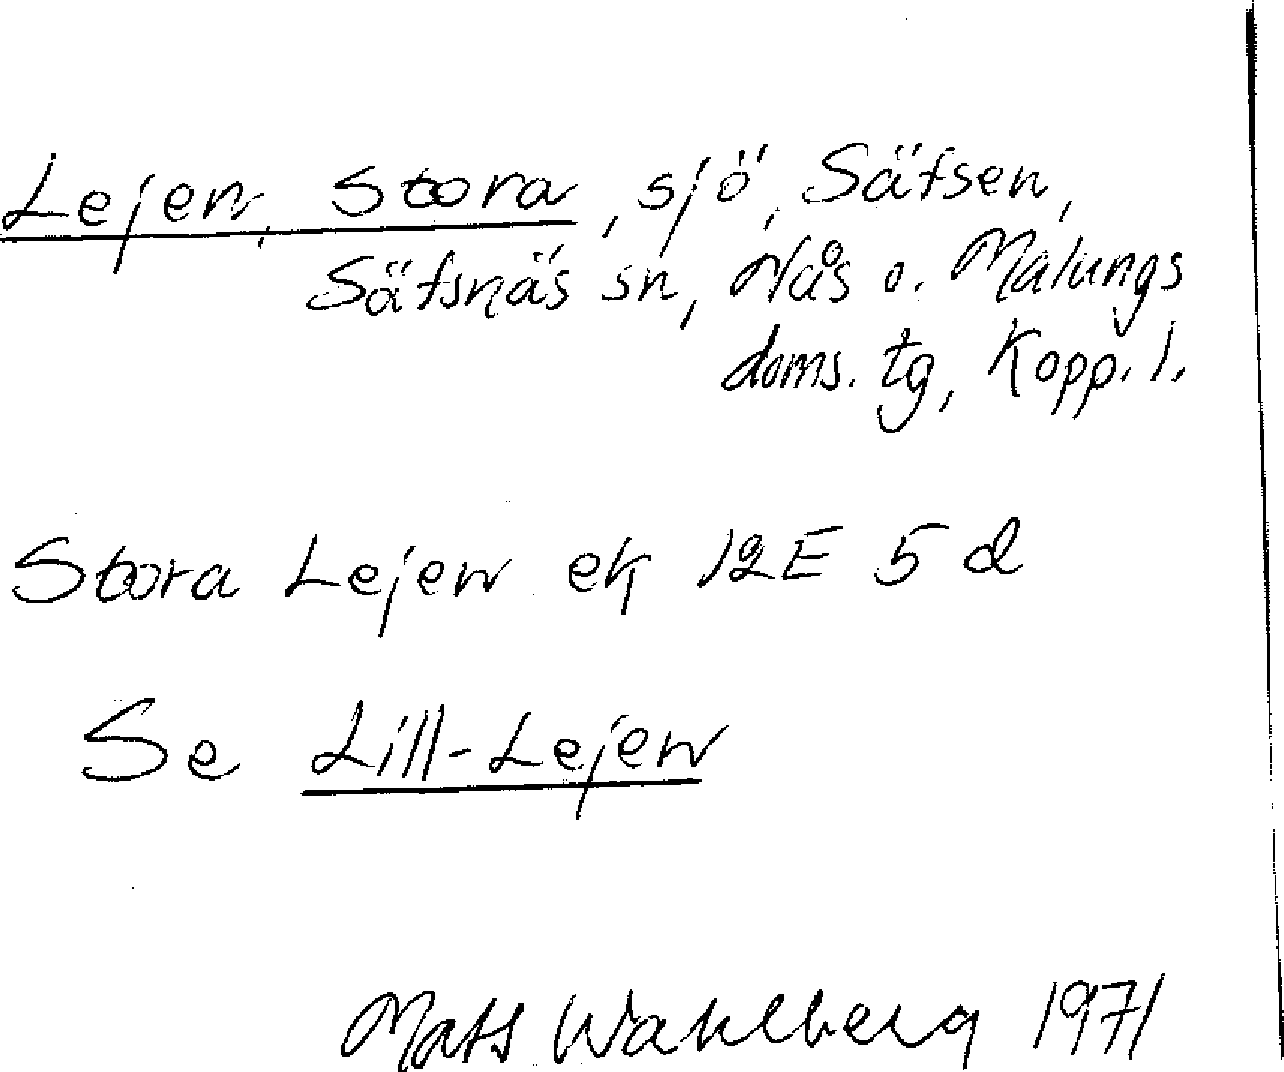 Lejen, Stora, sjö, Säfsen,
Säfsnäs sn, Nås o. Malungs
doms. tg, Kopp. l.
Stora Lejen ek 12E 5 d
Se Lill-Lejen
Mats Wahlberg 1971